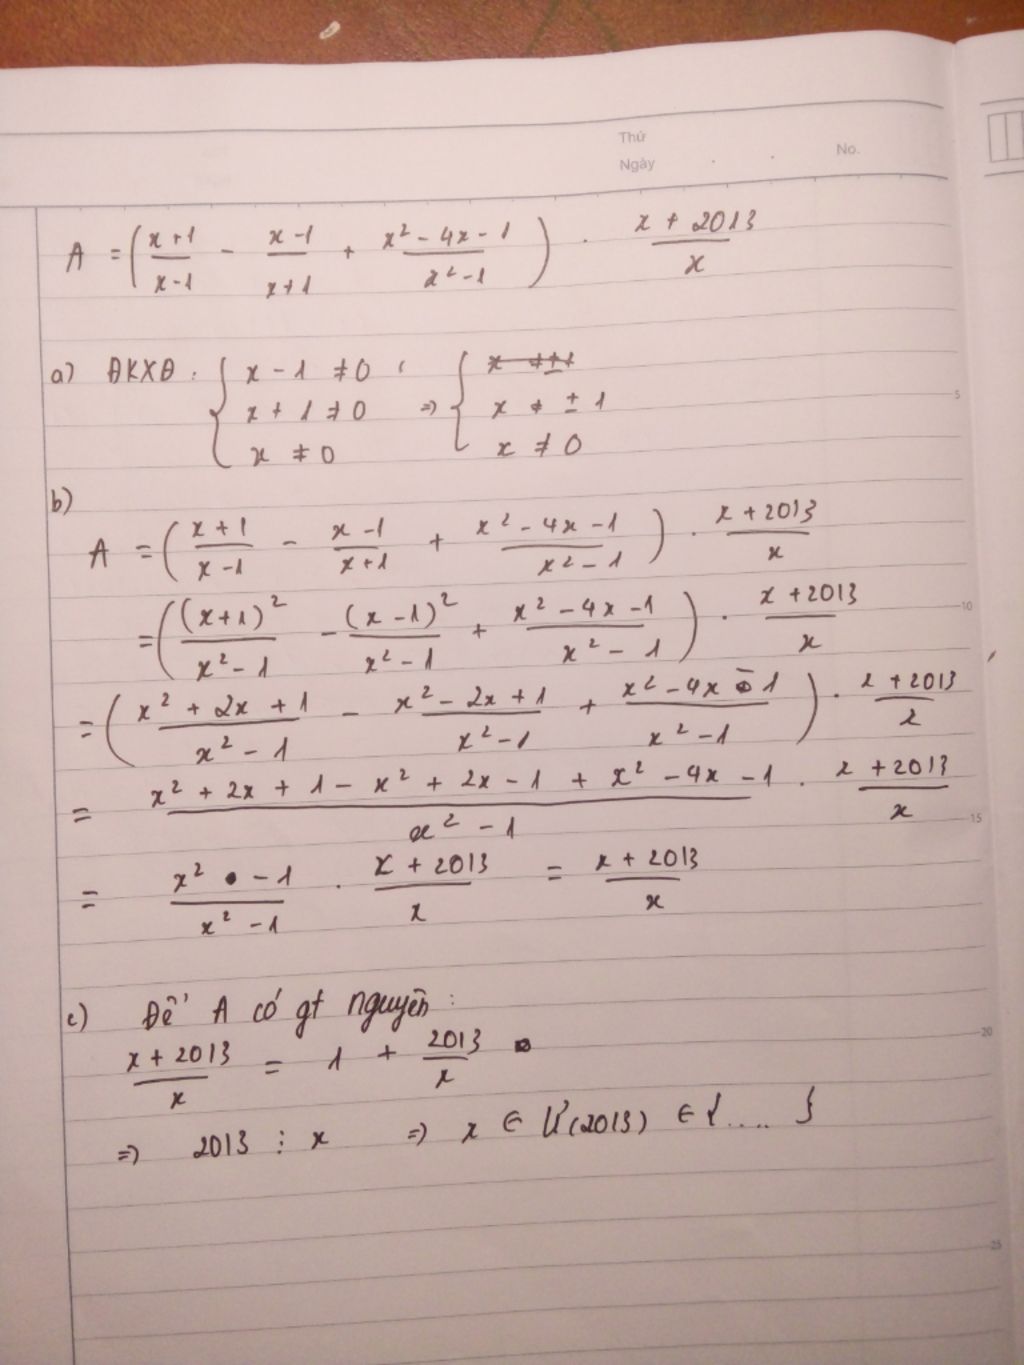 Thứ
Ngày . . No.
A = ( (x+1)/(x-1) - (x-1)/(x+1) + (x² - 4x - 1)/(x² - 1) ) . (x + 2013)/x
a) ĐKXĐ : { x - 1 ≠ 0 ; x + 1 ≠ 0 ; x ≠ 0 => { x ≠ ±1 ; x ≠ ± 1 ; x ≠ 0
5
b)
A = ( (x+1)/(x-1) - (x-1)/(x+1) + (x² - 4x - 1)/(x² - 1) ) . (x + 2013)/x
= ( (x+1)²/(x² - 1) - (x-1)²/(x² - 1) + (x² - 4x - 1)/(x² - 1) ) . (x + 2013)/x
10
= ( (x² + 2x + 1)/(x² - 1) - (x² - 2x + 1)/(x² - 1) + (x² - 4x - 1)/(x² - 1) ) . (x + 2013)/x
= (x² + 2x + 1 - x² + 2x - 1 + x² - 4x - 1)/(x² - 1) . (x + 2013)/x
15
= (x² - 1)/(x² - 1) . (x + 2013)/x = (x + 2013)/x
c) Để A có gt nguyên :
(x + 2013)/x = 1 + 2013/x
20
=> 2013 ⋮ x => x ∈ Ư(2013) ∈ {.... }
25